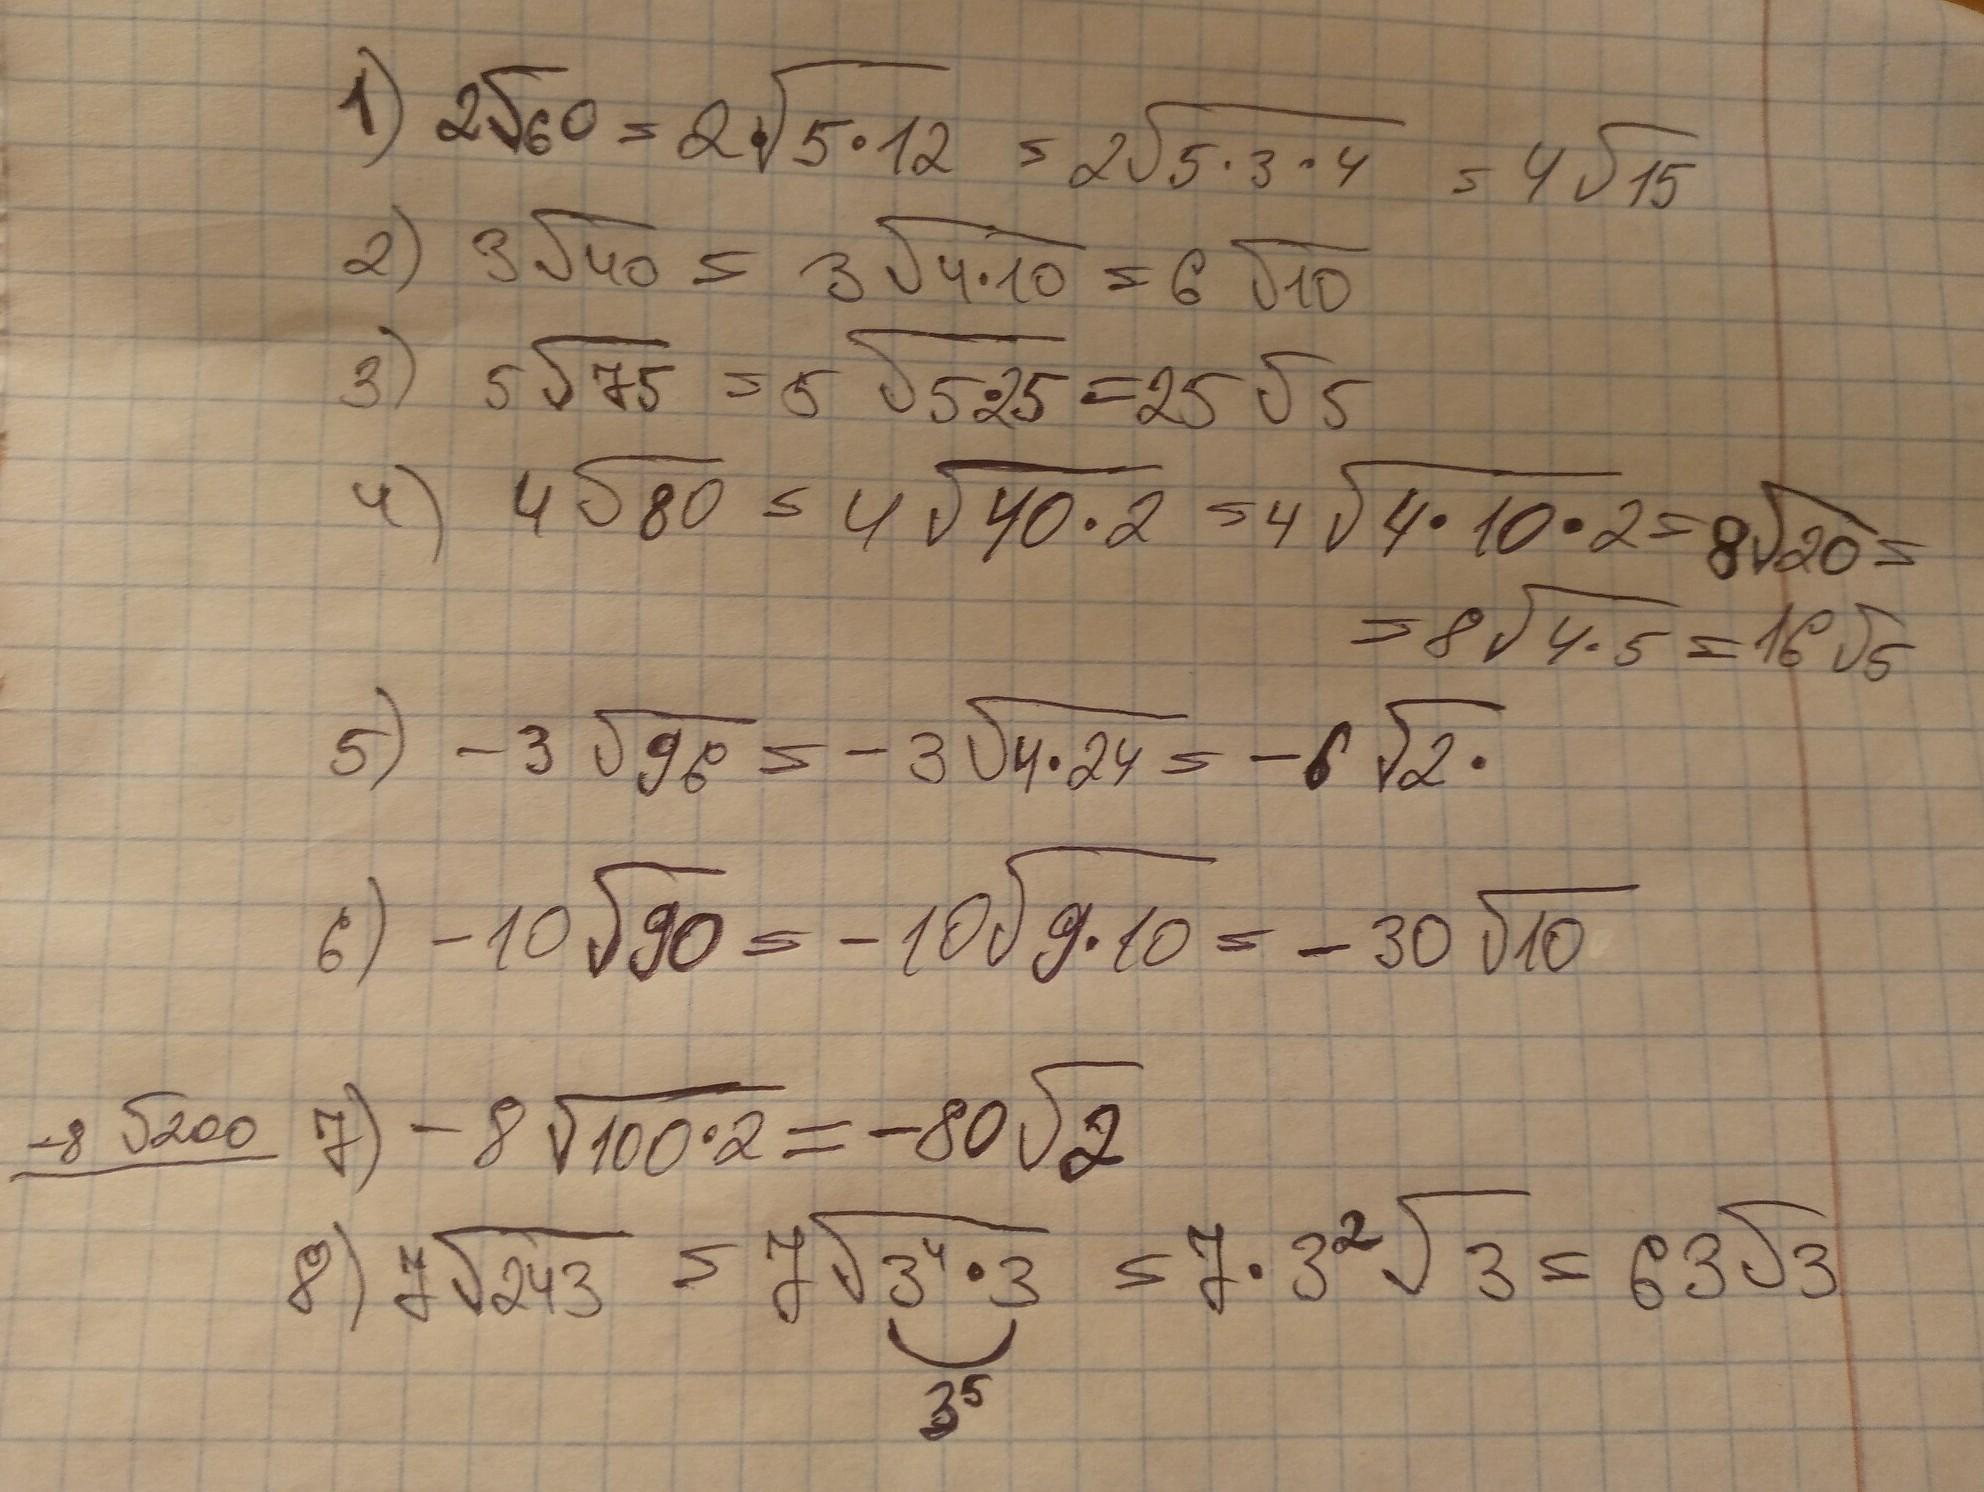 1) 2√60 = 2·√5·12 = 2√5·3·4 = 4√15
2) 3√40 = 3√4·10 = 6√10
3) 5√75 = 5√5·25 = 25√5
4) 4√80 = 4√40·2 = 4√4·10·2 = 8√20 =
= 8√4·5 = 16√5
5) -3√96 = -3√4·24 = -6√2·
6) -10√90 = -10√9·10 = -30√10
-8√200 7) -8√100·2 = -80√2
8) 7√243 = 7√3⁴·3 = 7·3²√3 = 63√3
3⁵